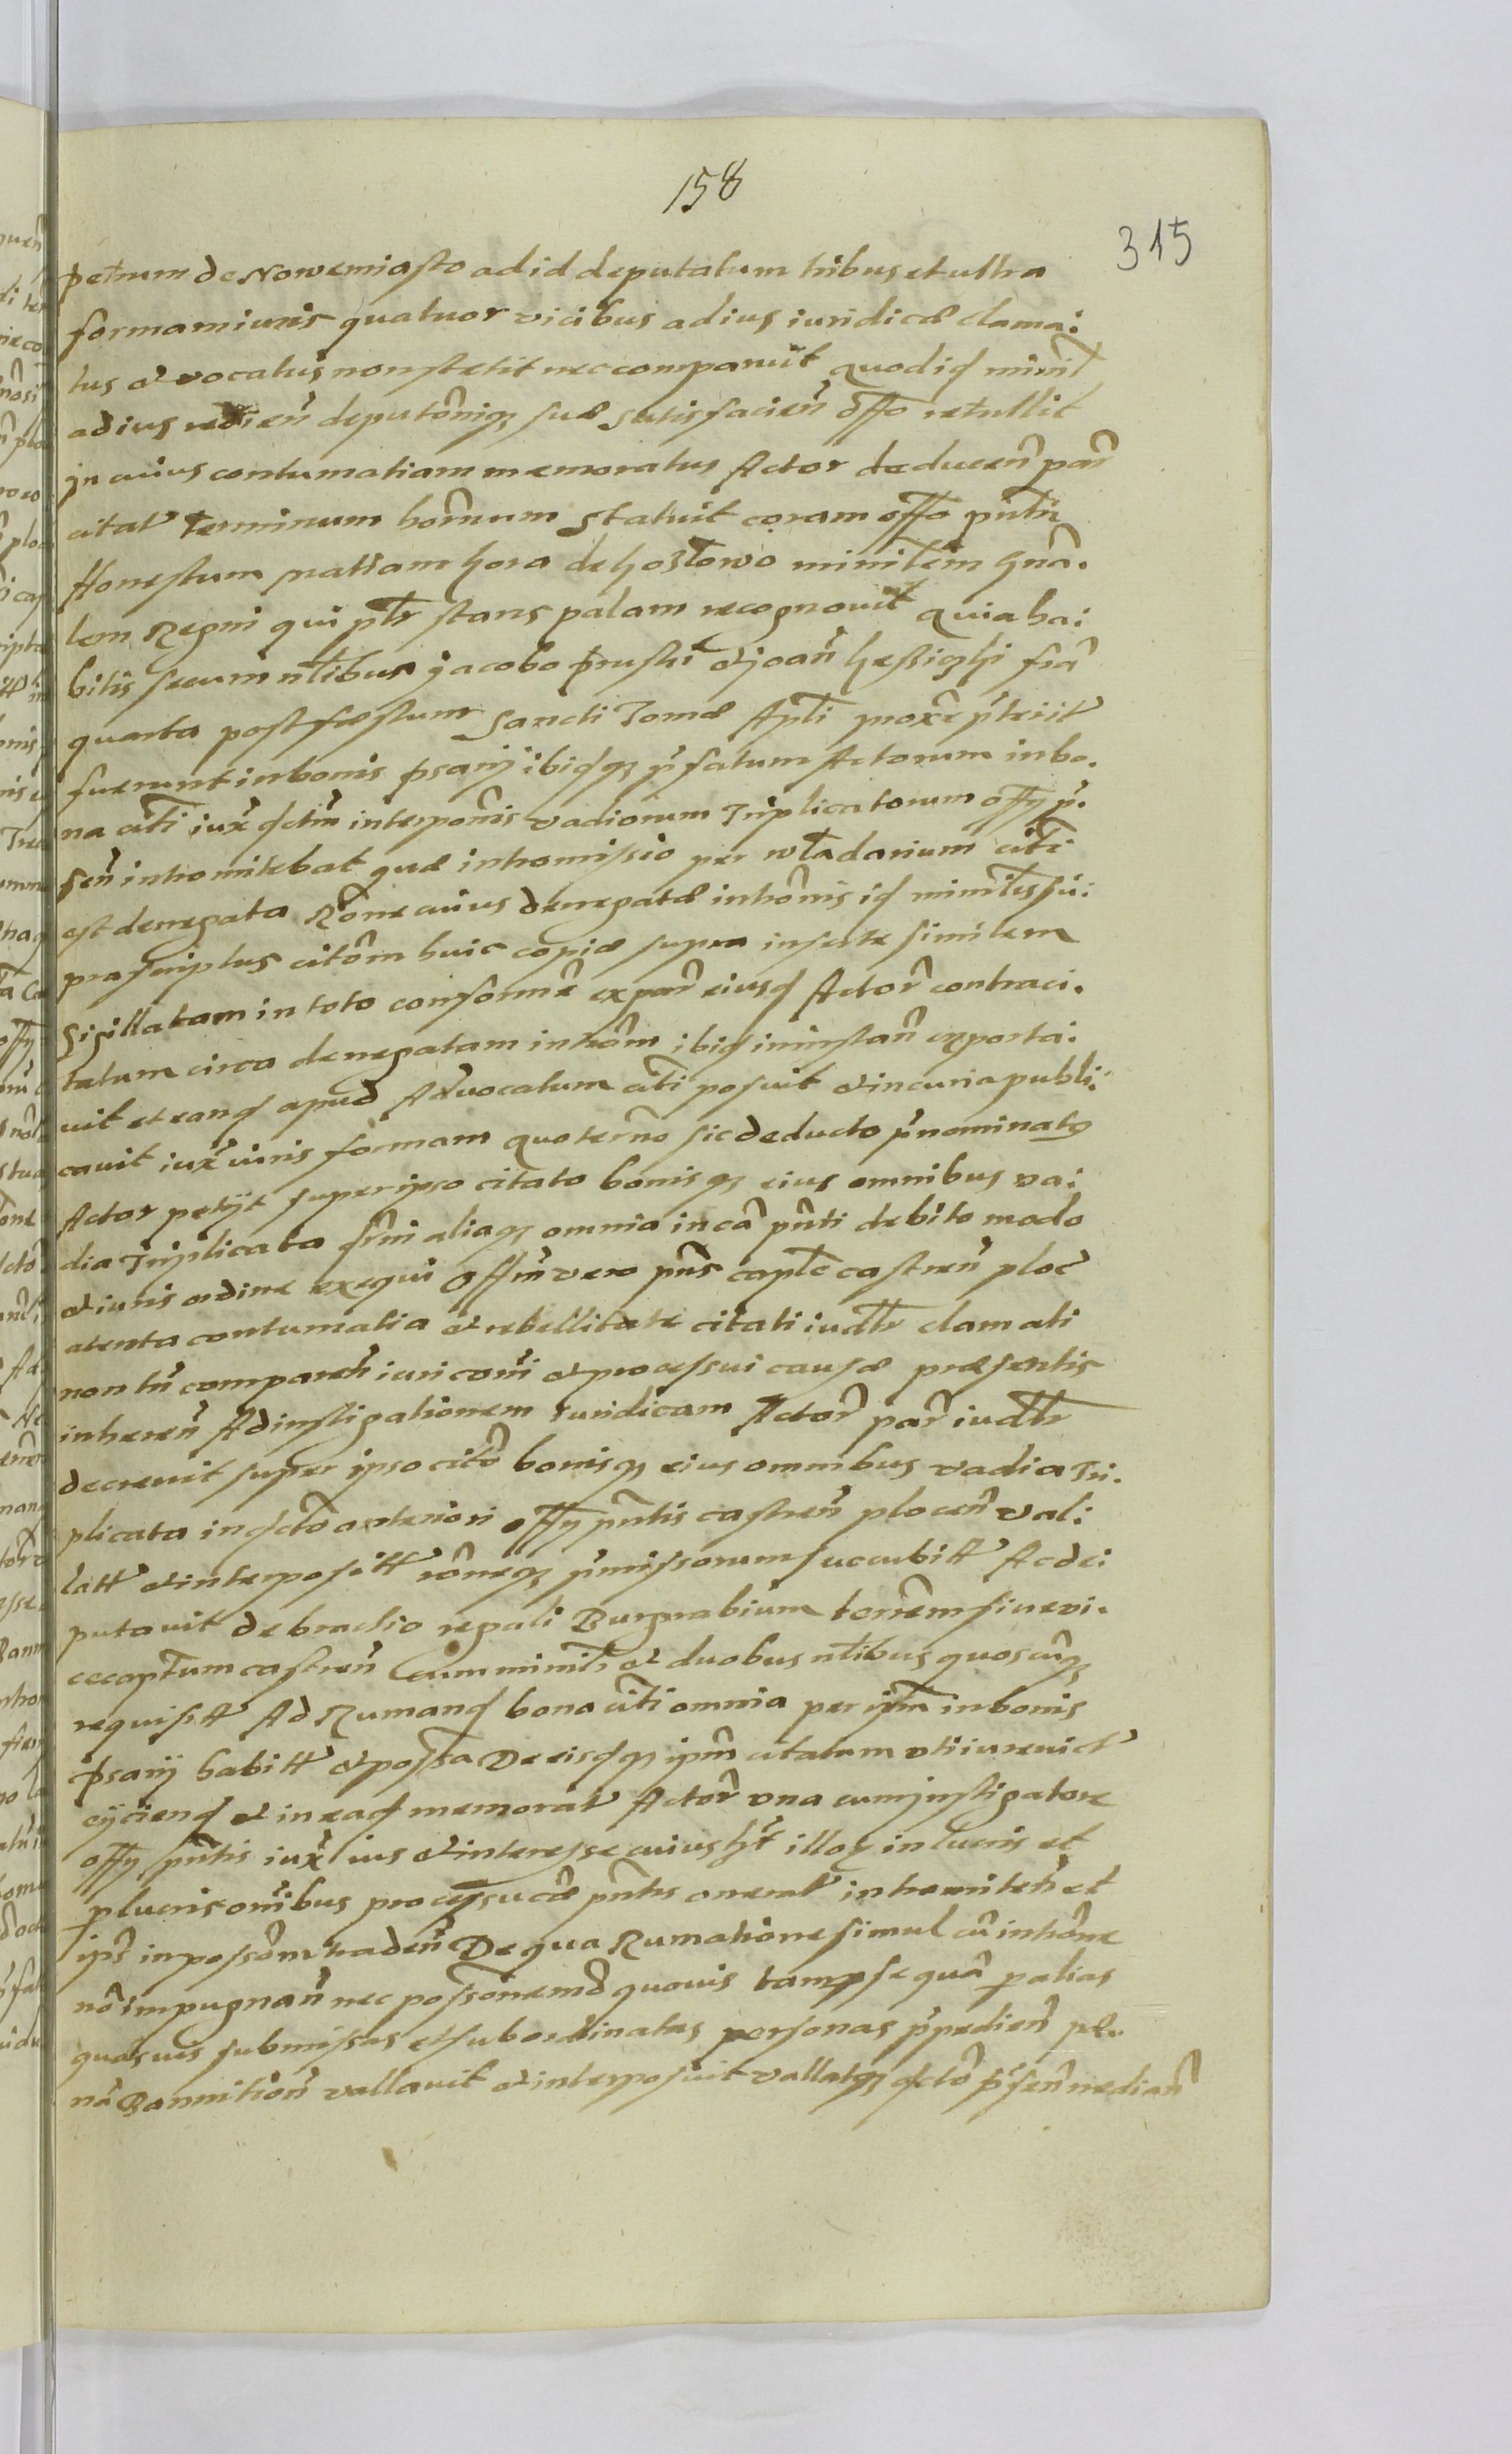 158
315
petrum de Nowemiasto ad id deputatum tribus et ultra
formam iuris quatuor vicibus ad ius iuridicæ clama:
tus et vocatus non stetit nec comparuit quod id minrl
ad ius redien deputonig suæ satisfacien offo retullit
in cuius contumatiam memoratus Actor deducen par
citat terminum hornum Statuit coram offo pntn
Honestum matiam hora de hoslowo minilem gnā.
lem Regni qui pltr stans palam recognovit quia ha:
bitis secum nlibus Jacobo pruski et joan feria
quarta post fæstum Sancti Tomæ Apli proxe pteriit
fuerunt in bonis psary ibidq pfatum Actorem in bo.
na citi iux dctm interponis vadiorum Triplicatorum offy p.
sen intromitebat quæ intromissio per wladarium citi
est denegata Rone cuius denegatæ intromis id minils su:
prascriptus citom huic copiæ supra insertæ similem
Sigillatam in toto conforme ex par eiusd Actor contra ci.
tatum circa denegatam introm ibid in instan exporta:
uit et eand apud Advocatum citi posuit et in curia publi:
cavit iux iuris formam quo terno sic deducto pnominatg
Actor petyt super ipso citato bonisq eius omnibus va:
dia Triplicata srni aliaq omnia in cā pnti debito modo
et iuris ordine exequi Offm vero pns caple castren ploc
atenta contumatia et rebellitate citati iudltr clamati
non tn comparen iuri coiñi et processui causæ præsentis
inheren Ad instigationem iuridicam Actor par iudltr
decrevit super ipso cito bonisq eius omnibus vadia Tri.
plicata in dcto anteriori offy pntis castren plocen val:
latt et interpositt roneq pmissorum succubitt Ac de:
putavit de brachio regali Burgrabium terrem siue vi.
cecaptum castren Cum minili et duobus nlibus quoscūq
requisitt Ad Rumand bona citi omnia per ipm in bonis
psary habitt et possa De eisdq ipm citatum uti iurevict
eijciend et in ead memorat Actor una cum instigatore
offy pntis iux ius et interesse cuiusht illoq in lucris et
plucris omibus processu cæ pntis onerat intromiten et
ips in possom traden De qua Rumatione simul cū introne
nō impugnan nec possonemd quovis tam p se quā p alias
quasvis submissas et subordinatas personas ppedien pe.
nā Bannition vallavit et interposuit vallatq dcto psen median